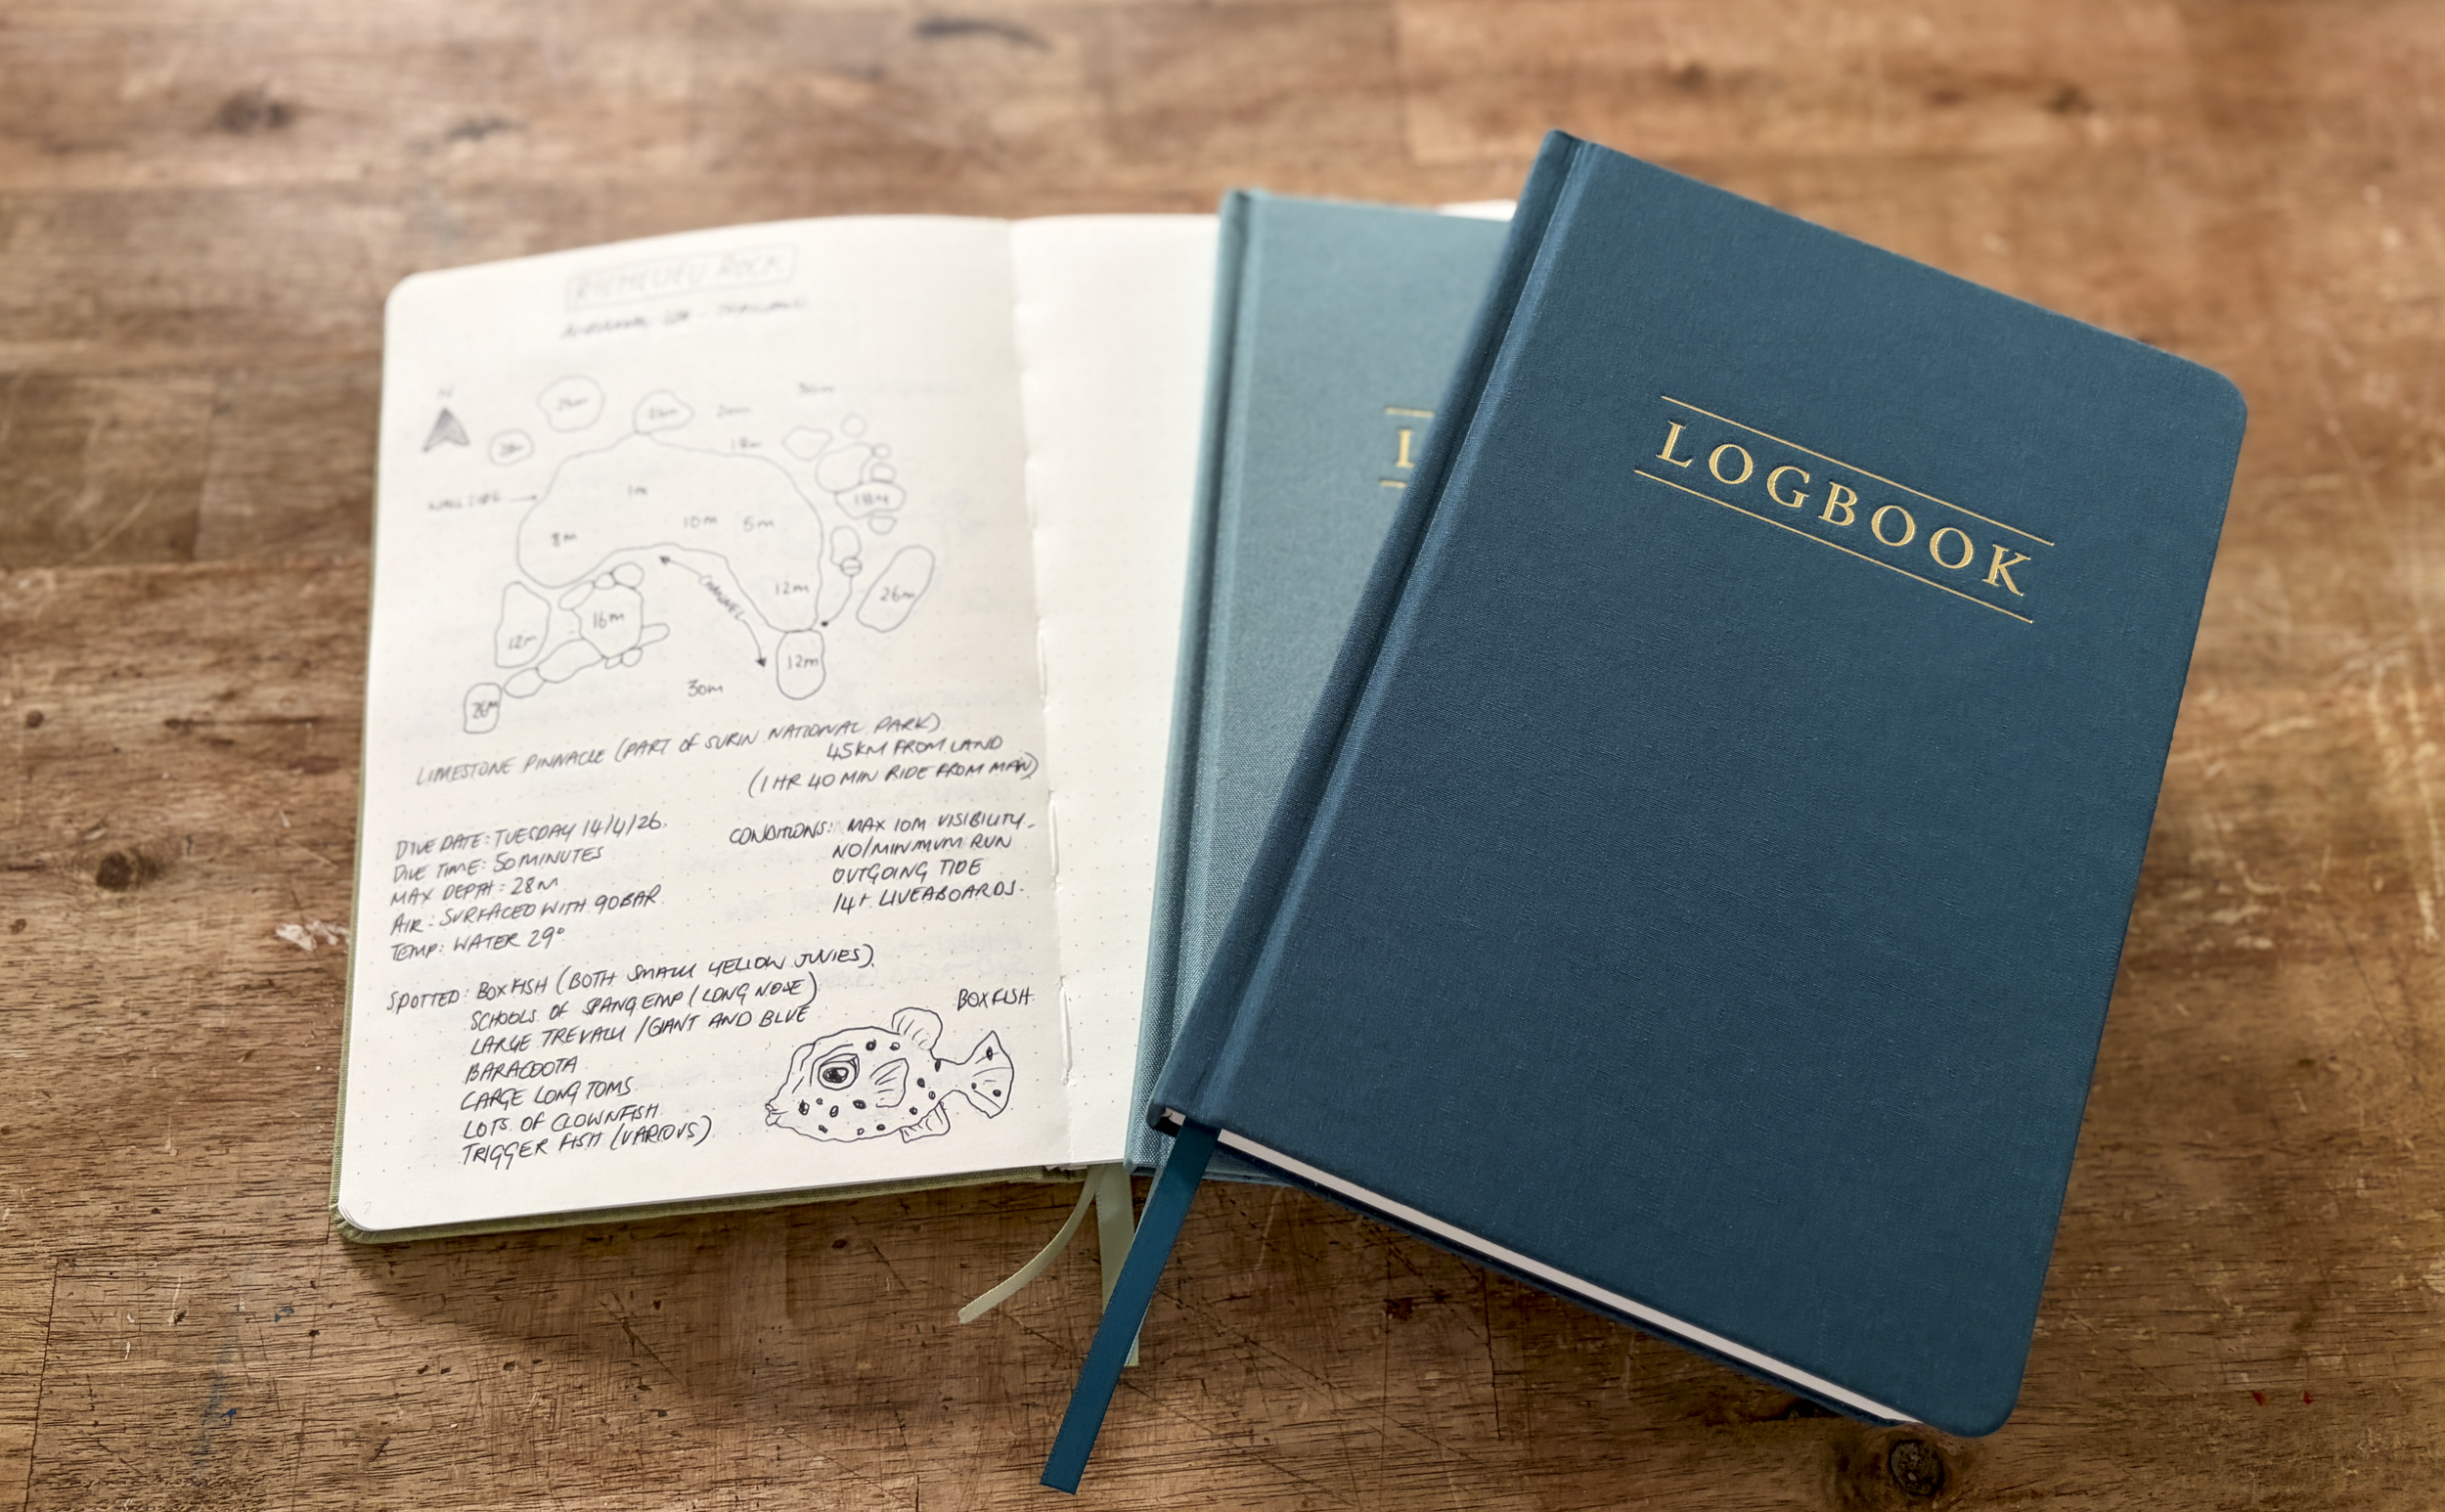 RICHELIEU ROCK
ANDAMAN SEA - THAILAND
N
26m
30m
20m
18m
WALL SIDE
1m
18m
10m
5m
8m
CHANNEL
12m
26m
12m
16m
12m
30m
26m
LIMESTONE PINNACLE (PART OF SURIN NATIONAL PARK)
45KM FROM LAND
(1 HR 40 MIN RIDE FROM MAIN)
DIVE DATE: TUESDAY 14/4/26.
DIVE TIME: 50 MINUTES
MAX DEPTH: 28M
AIR: SURFACED WITH 90BAR
TEMP: WATER 29°
CONDITIONS: MAX 10M VISIBILITY
NO/MINIMUM RUN
OUTGOING TIDE
14+ LIVEABOARDS.
SPOTTED: BOXFISH (BOTH SMALL YELLOW JUVIES).
SCHOOLS OF SPANG EMP (LONG NOSE)
LARGE TREVALLY /GIANT AND BLUE
BARACOOTA
LARGE LONG TOMS
LOTS OF CLOWNFISH
TRIGGER FISH (VARIOUS)
BOXFISH
2
L
LOGBOOK